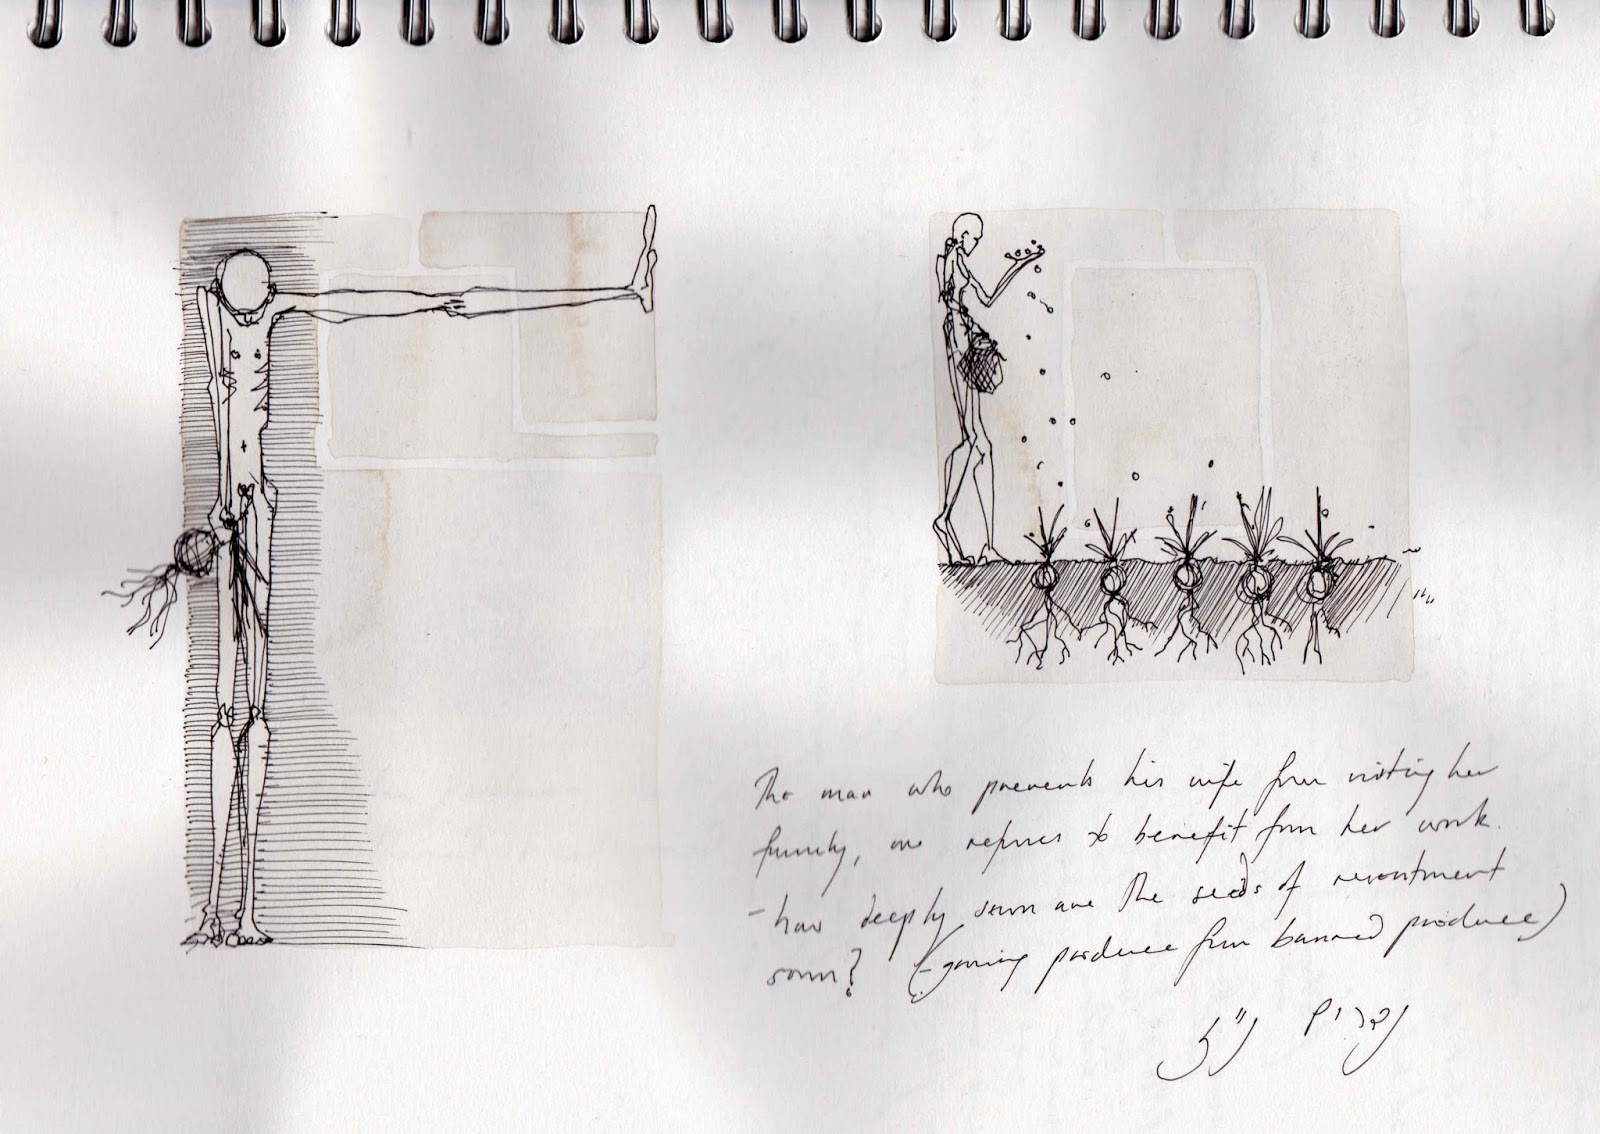 The man who prevents his wife from visiting her
family, or refuses to benefit from her work.
- how deeply sown are the seeds of resentment
sown? (- growing produce from banned produce)
נדרים נ"ז